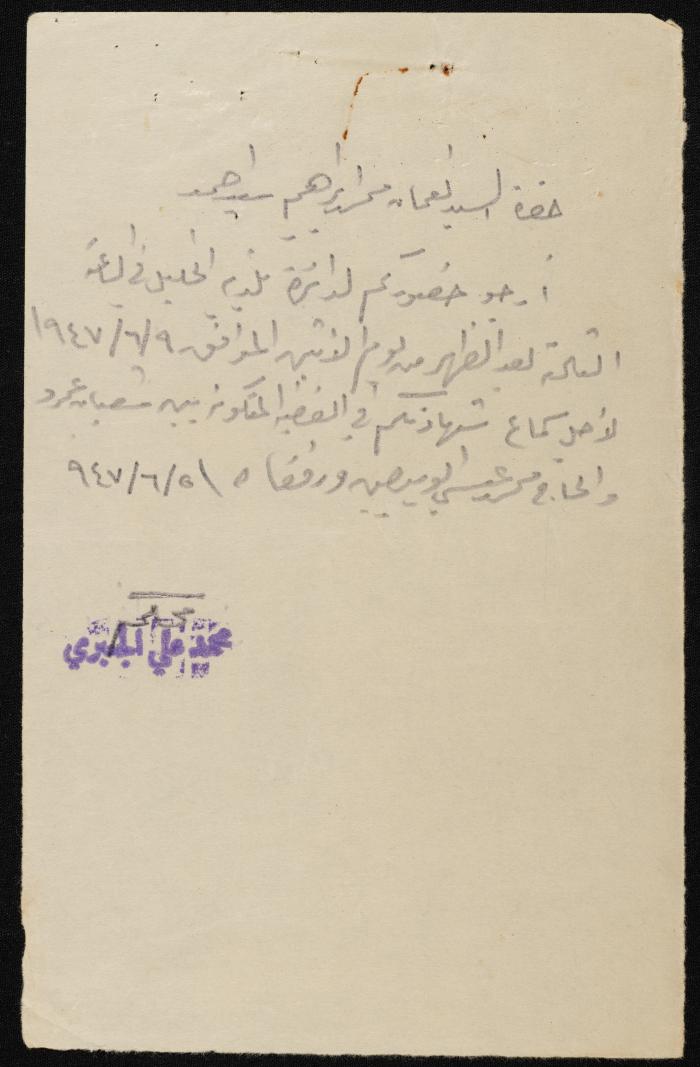 حضرة السيد نعمان محمد ابراهيم سيد احمد
أرجو حضوركم لدائرة بلدية الخليل في الساعة
الثالثة بعد الظهر من يوم الاثنين الموافق ٩/٦/١٩٤٧
لأجل سماع شهادتكم في القضية المتكونة بين شعبان عمرو
والحاج محمد عيسى ورفقاه ٥/٦/٩٤٧
محمد علي الجعبري